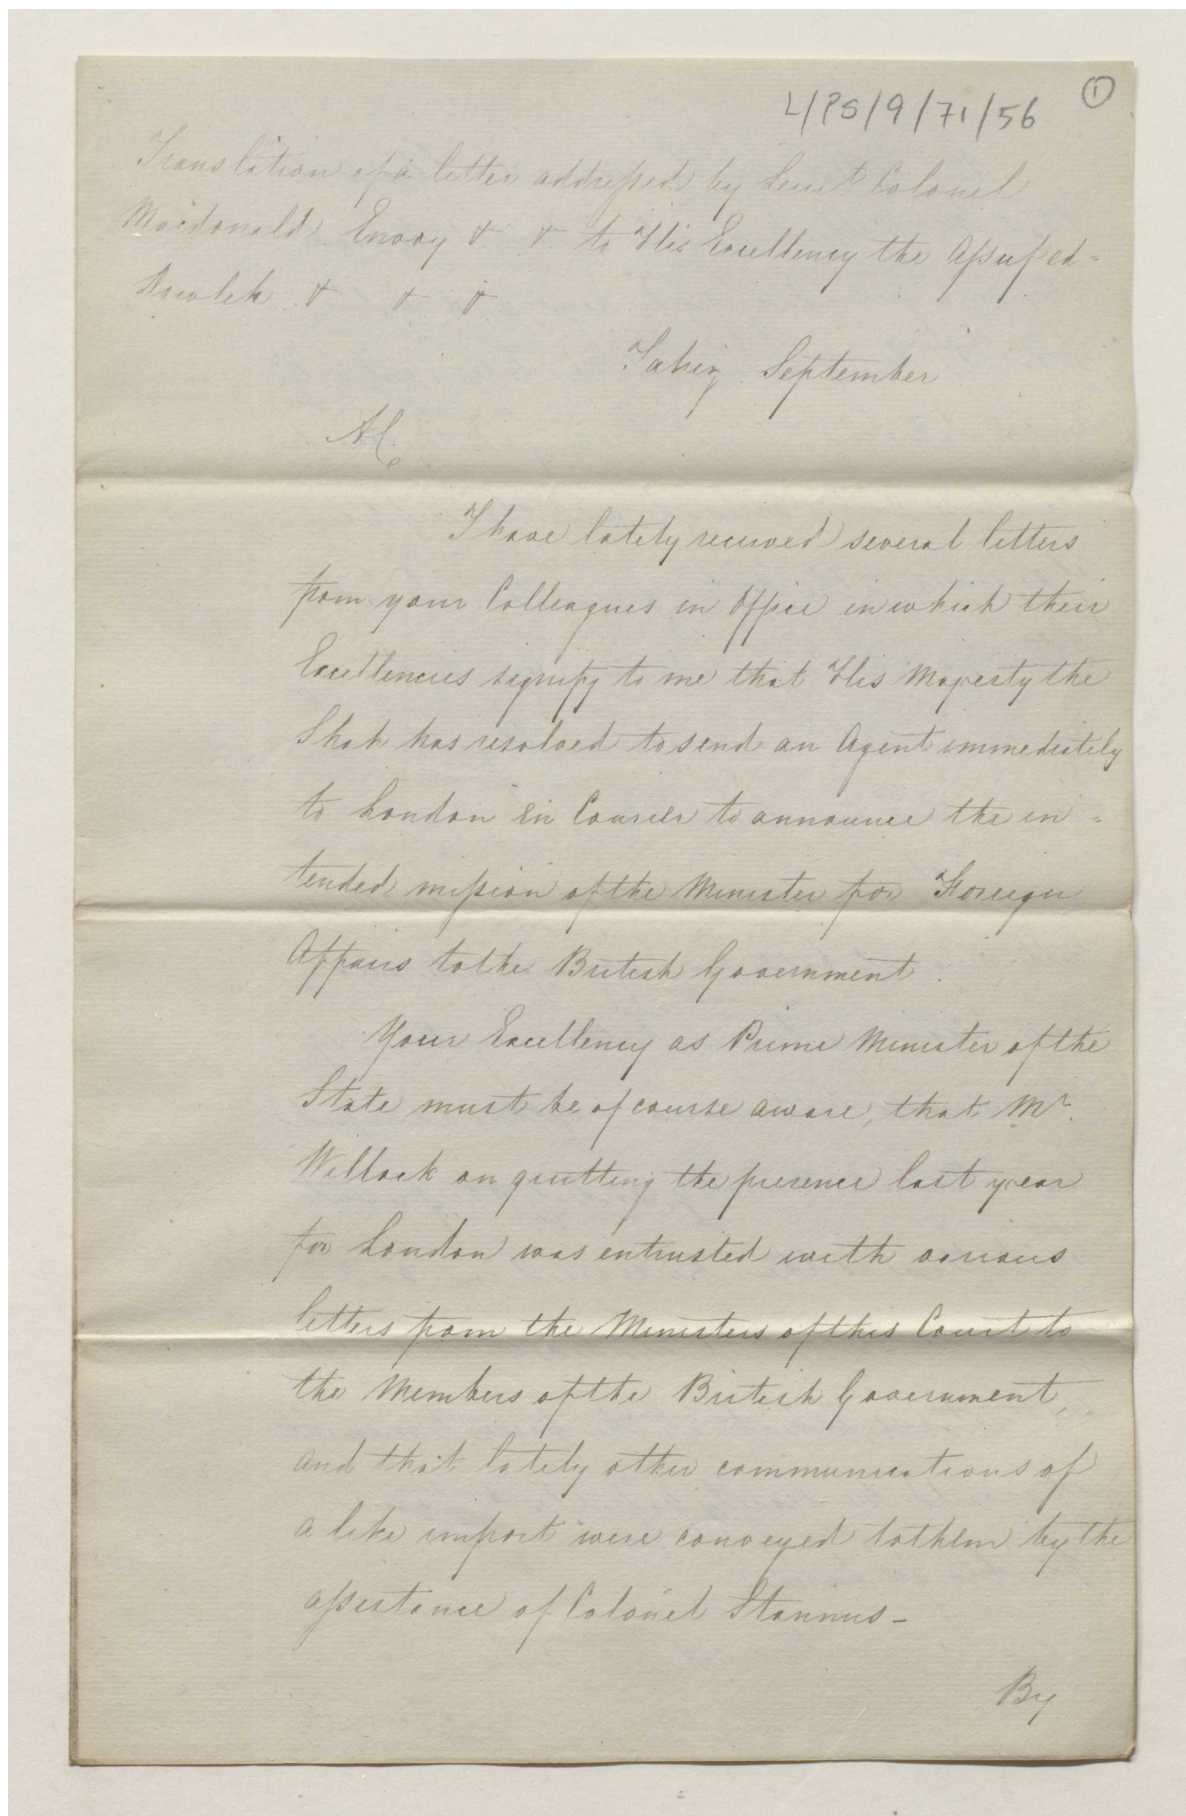 L/PS/9/71/56
1
Translation of a letter addressed by Lieut Colonel
Macdonald Envoy & & to His Excellency the Assufed=
Dowleh & & &
September
I have lately received several letters
from your Colleagues in Office in which their
Excellencies signify to me that His Majesty the
Shah has resolved to send an Agent immediately
to London en Courier to announce the in=
tended mission of the Minister for Foreign
Affairs to the British Government.
Your Excellency as Prime Minister of the
State must be of course aware, that Mr.
Willock on quitting the presence last year
for London was entrusted with various
letters from the Ministers of this Court to
the Members of the British Government,
and that lately other communications of
a like import were conveyed to them by the
assistance of Colonel Stannus-
By